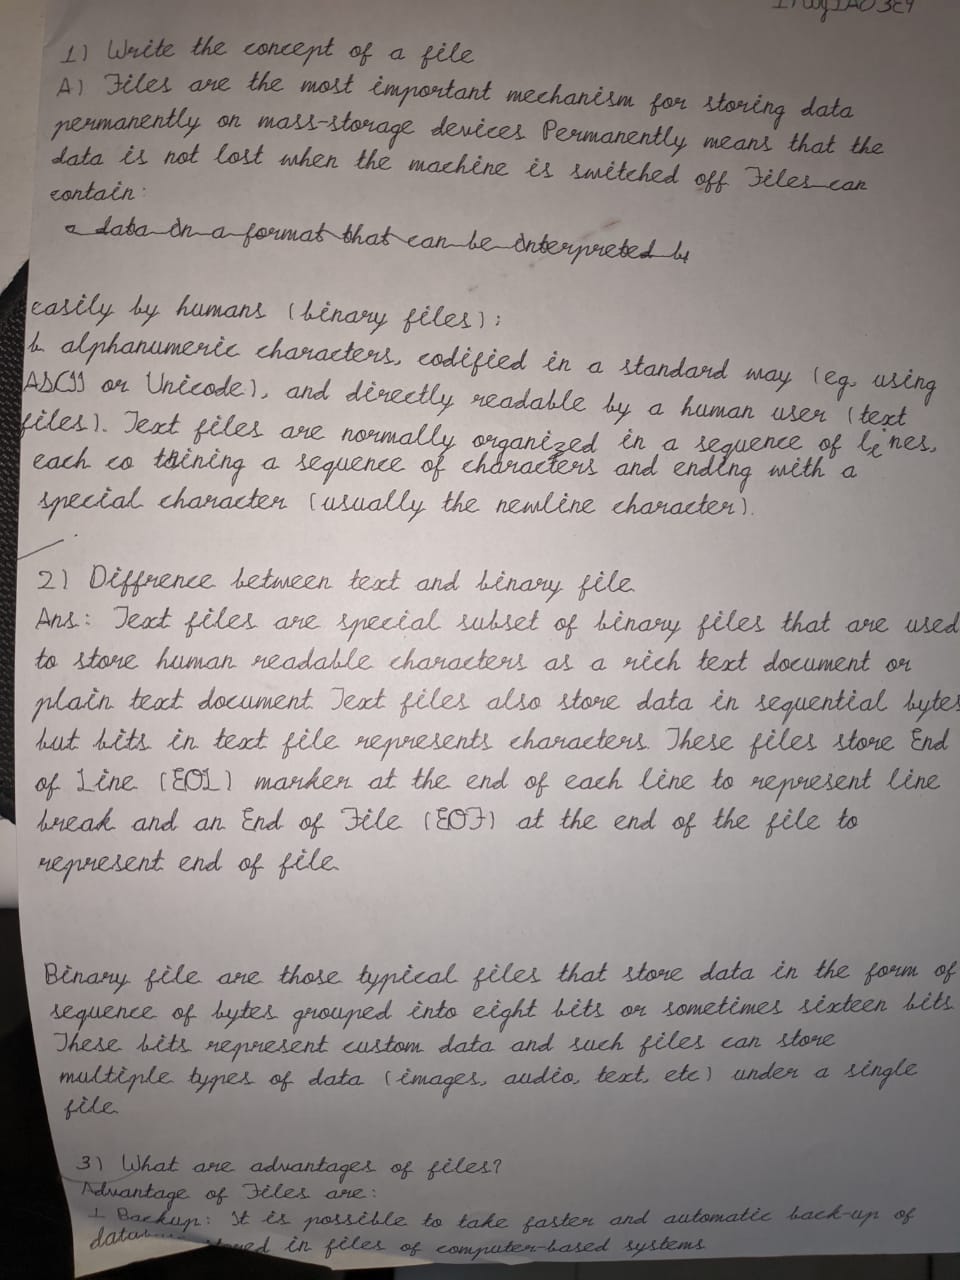 1) Write the concept of a file
A) Files are the most important mechanism for storing data
permanently on mass-storage devices Permanently means that the
data is not lost when the machine is switched off Files can
contain:
a data in a format that can be interpreted by
easily by humans (binary files);
b. alphanumeric characters, codified in a standard way (eg. using
ASCII or Unicode), and directly readable by a human user (text
files). Text files are normally organized in a sequence of lines,
each co taining a sequence of characters and ending with a
special character (usually the newline character).
2) Diffrence between text and binary file
Ans: Text files are special subset of binary files that are used
to store human readable characters as a rich text document or
plain text document Text files also store data in sequential bytes
but bits in text file represents characters. These files store End
of Line (EOL) marker at the end of each line to represent line
break and an End of File (EOF) at the end of the file to
represent end of file
Binary file are those typical files that store data in the form of
sequence of bytes grouped into eight bits or sometimes sixteen bits
These bits represent custom data and such files can store
multiple types of data (images, audio, text, etc) under a single
file.
3) What are advantages of files?
Advantage of Files are:
1 Backup: It is possible to take faster and automatic back-up of
in files of computer-based systems